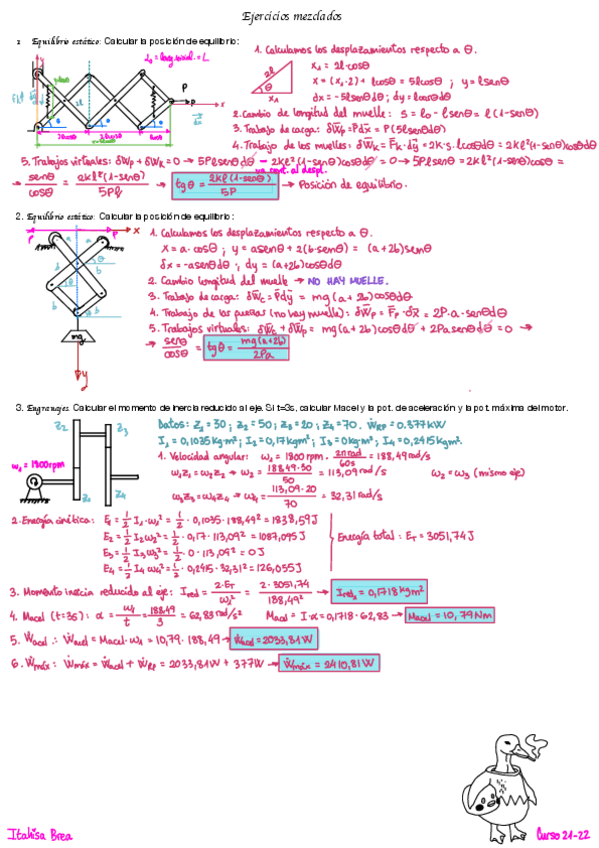 Ejercicios mezclados
1 Equilibrio estático: Calcular la posición de equilibrio:
1. Calculamos los desplazamientos respecto a θ.
x₁ = 2l·cosθ
x = (x₁·2) + lcosθ = 5lcosθ ; y = lsenθ
dx = -5lsenθdθ ; dy = lcosθdθ
2. Cambio de longitud del muelle: S = l₀ - lsenθ = l(1-senθ)
3. Trabajo de carga: δWp = Pdx = P(5lsenθdθ)
4. Trabajo de los muelles: δWk = Fk·dy = 2K·S·lcosθdθ = 2Kl²(1-senθ)cosθdθ
5. Trabajos virtuales: δWp + δWk = 0 → 5Plsenθdθ - 2kl²(1-senθ)cosθdθ = 0 → 5Plsenθ = 2kl²(1-senθ)cosθ =
va cont. al despl.
→ senθ/cosθ = 2kl²(1-senθ)/5Pl → tgθ = 2kl(1-senθ)/5P → Posición de equilibrio.
2. Equilibrio estático: Calcular la posición de equilibrio:
1. Calculamos los desplazamientos respecto a θ.
x = a·cosθ ; y = asenθ + 2(b·senθ) = (a+2b)senθ
δx = -asenθdθ ; dy = (a+2b)cosθdθ
2. Cambio longitud del muelle → NO HAY MUELLE.
3. Trabajo de carga: δWc = Pdy = mg(a+2b)cosθdθ
4. Trabajo de las fuerzas (no hay muelle): δWp = Fp·δx = 2P·a·senθdθ
5. Trabajos virtuales: δWc + δWp = mg(a+2b)cosθdθ + 2Pasenθdθ = 0 →
→ senθ/cosθ = tgθ = mg(a+2b)/2Pa
mg
3. Engranajes. Calcular el momento de inercia reducido al eje. Si t=3s, calcular Macel y la pot. de aceleración y la pot. máxima del motor.
Datos: Z₁=30 ; Z₂=50 ; Z₃=20 ; Z₄=70. ẆRP = 0.377kW
I₁ = 0,1035kg·m² ; I₂ = 0,17kgm² ; I₃ = 0kg·m² ; I₄ = 0,2415kgm².
Z₂
Z₃
ω₁ = 1800rpm
Z₁
Z₄
1. Velocidad angular: ω₁ = 1800rpm · 2πrad/60s = 188,49rad/s
ω₁Z₁ = ω₂Z₂ → ω₂ = 188,49·30/50 = 113,09rad/s
ω₂ = ω₃ (mismo eje)
ω₃Z₃ = ω₄Z₄ → ω₄ = 113,09·20/70 = 32,31rad/s
2. Energía cinética: E₁ = 1/2 I₁·ω₁² = 1/2 · 0,1035·188,49² = 1838,59J
E₂ = 1/2 I₂ω₂² = 1/2 · 0,17·113,09² = 1087,095J
E₃ = 1/2 I₃ω₃² = 1/2 · 0·113,09² = 0J
E₄ = 1/2 I₄ω₄² = 1/2 · 0,2415·32,31² = 126,055J
Energía total: ET = 3051,74J
3. Momento inercia reducido al eje: Ired = 2·ET/ω₁² = 2·3051,74/188,49² → Ired₁ = 0,1718kgm²
4. Macel (t=3s): α = ω₁/t = 188,49/3 = 62,83rad/s² Macel = I·α = 0,1718·62,83 → Macel = 10,79Nm
5. Ẇacel: Ẇacel = Macel·ω₁ = 10,79·188,49 → Ẇacel = 2033,81W
6. Ẇmáx: Ẇmáx = Ẇacel + ẆRP = 2033,81W + 377W → Ẇmáx = 2410,81W
Itahisa Brea
Curso 21-22